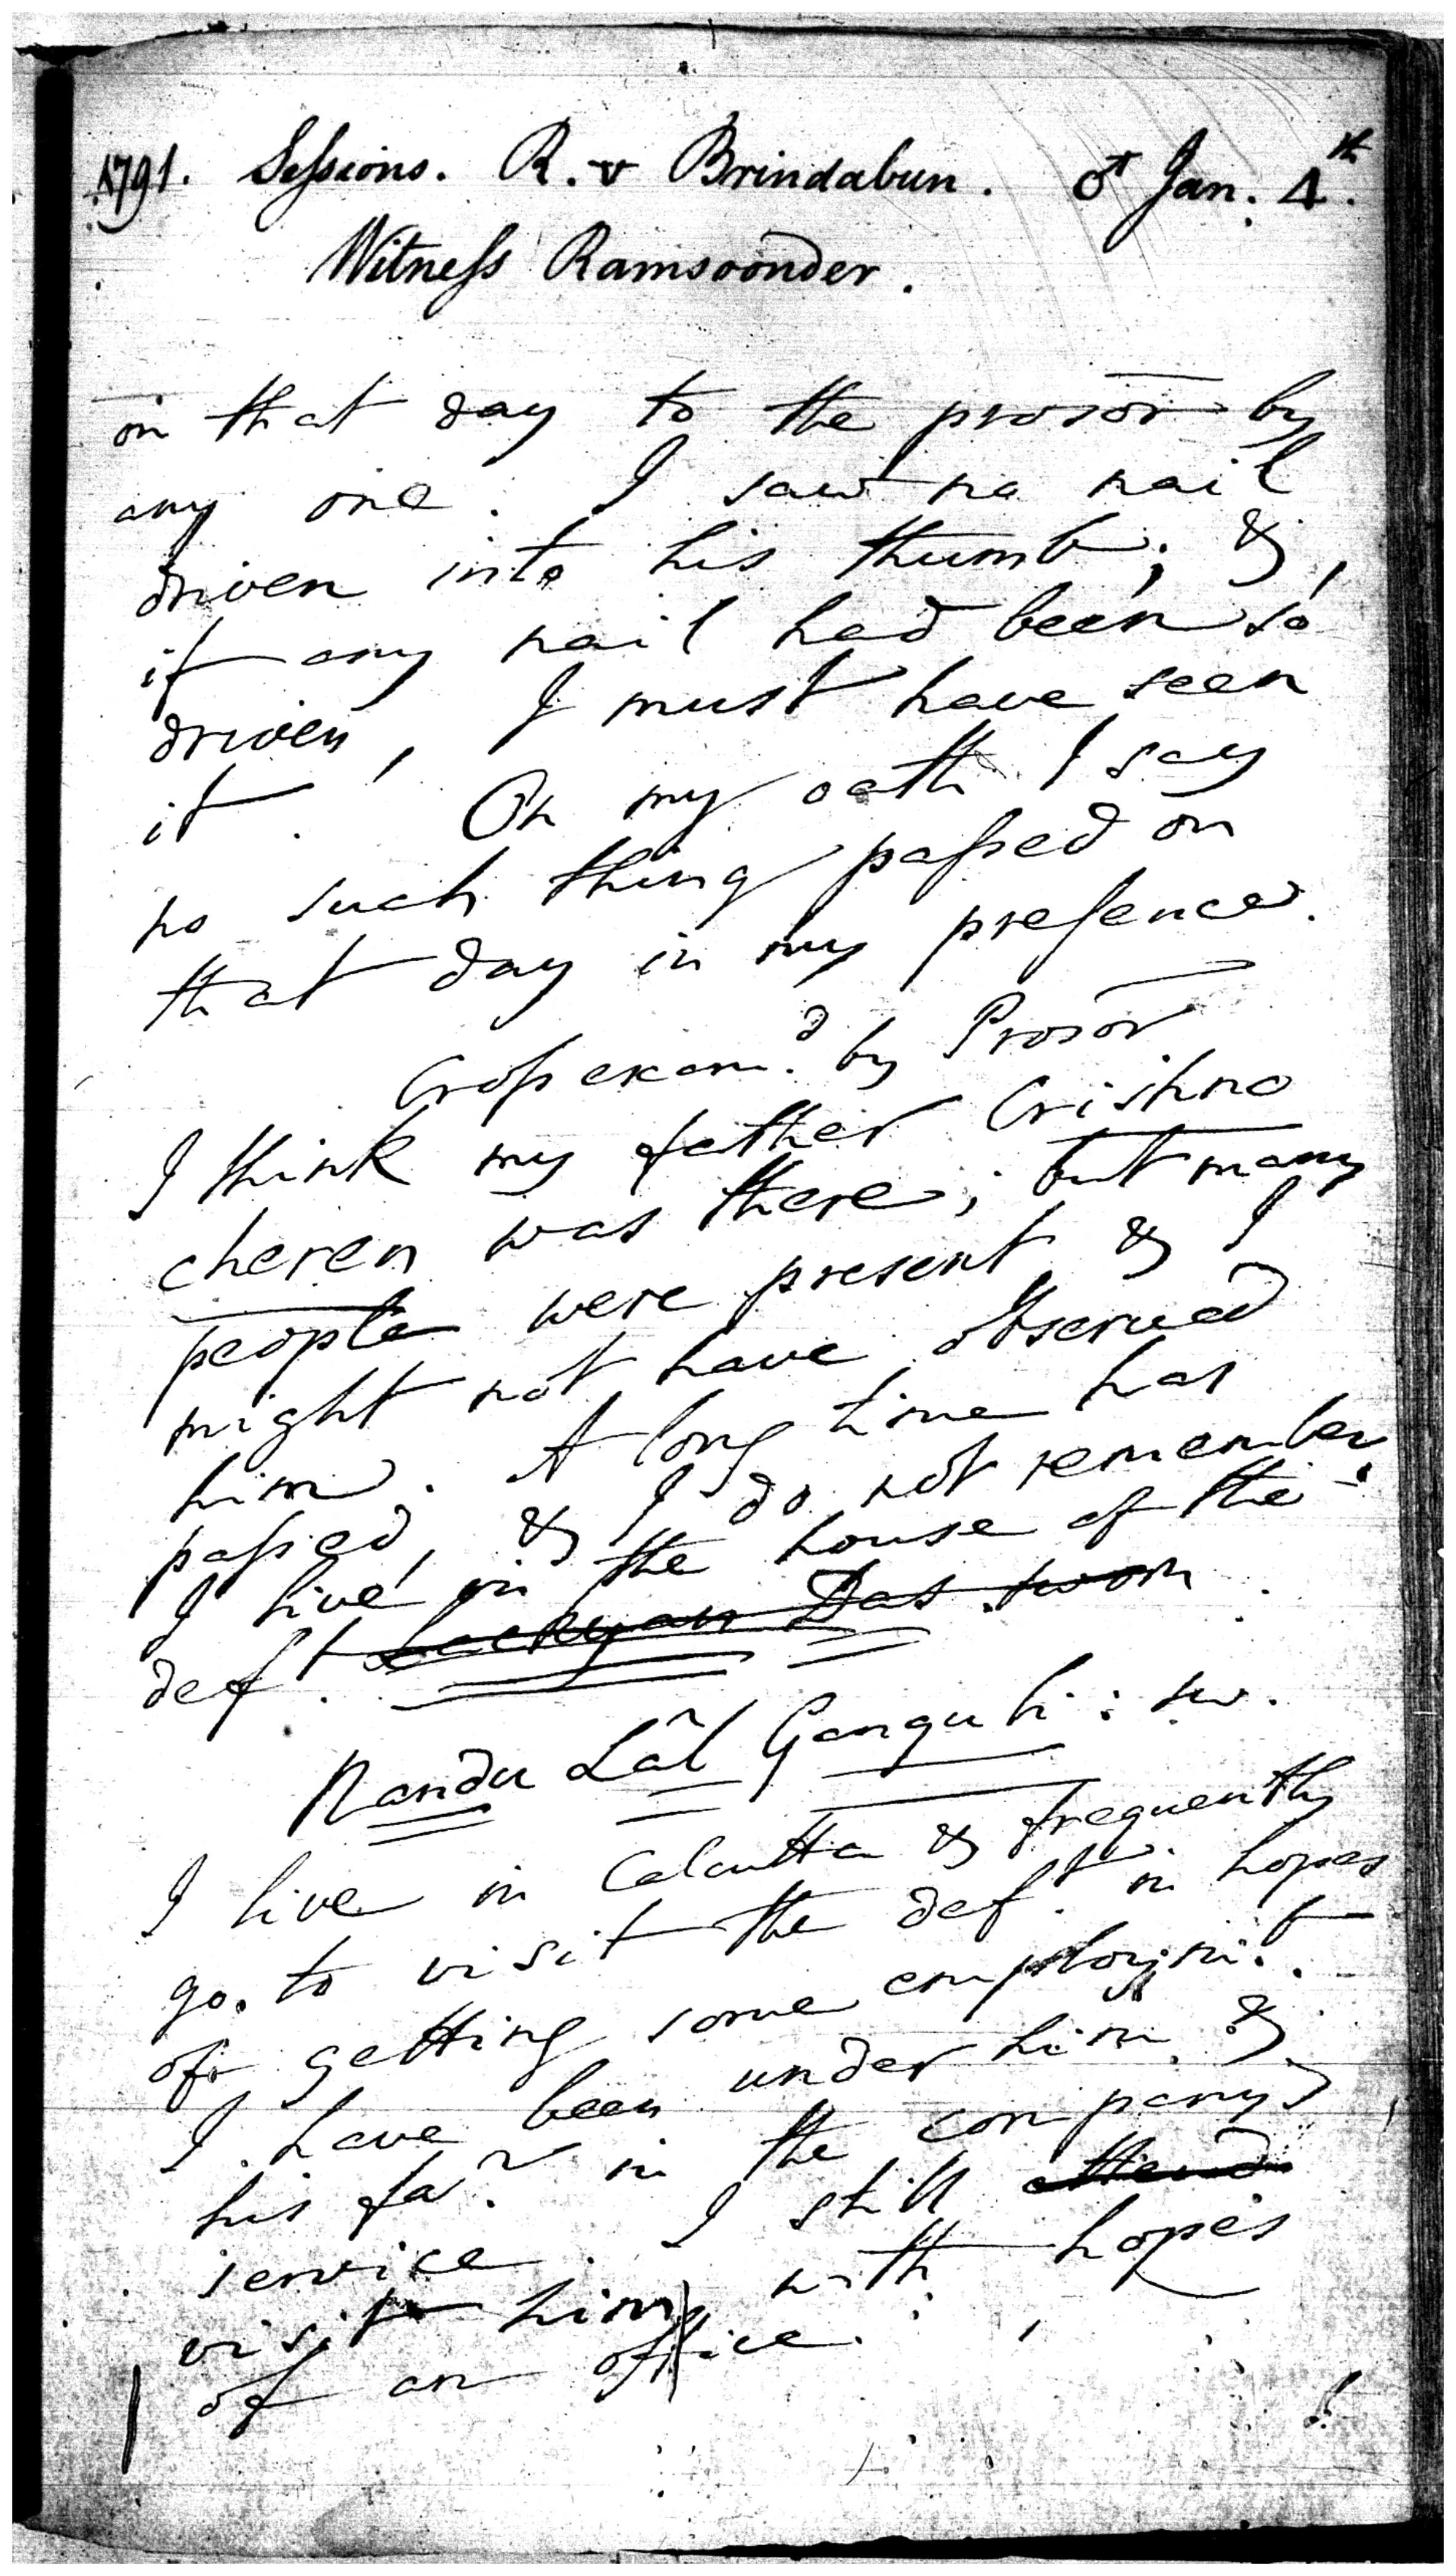 1791. Sessions. R. v Brindabun. ♂ Jan. 4th.
Witness Ramsoonder.
on that day to the prosor by
any one. I saw no nail
driven into his thumb; &,
if any nail had been so
driven, I must have seen
it. On my oath I say
no such thing passed on
that day in my presence.
Cross exam.d by Prosor
I think my father Crishno
cheren was there; but many
people were present & I
might not have observed
him. A long time has
passed, & I do not remember.
I live in the house of the
def.t Das sworn
Nandu Lãl Ganguli: sw.
I live in Calcutta & frequently
go to visit the def.t in hopes
of getting some employm.t.
I have been under him &
his fa.r in the company's
service. I still attend
visit him with hopes
of an office.